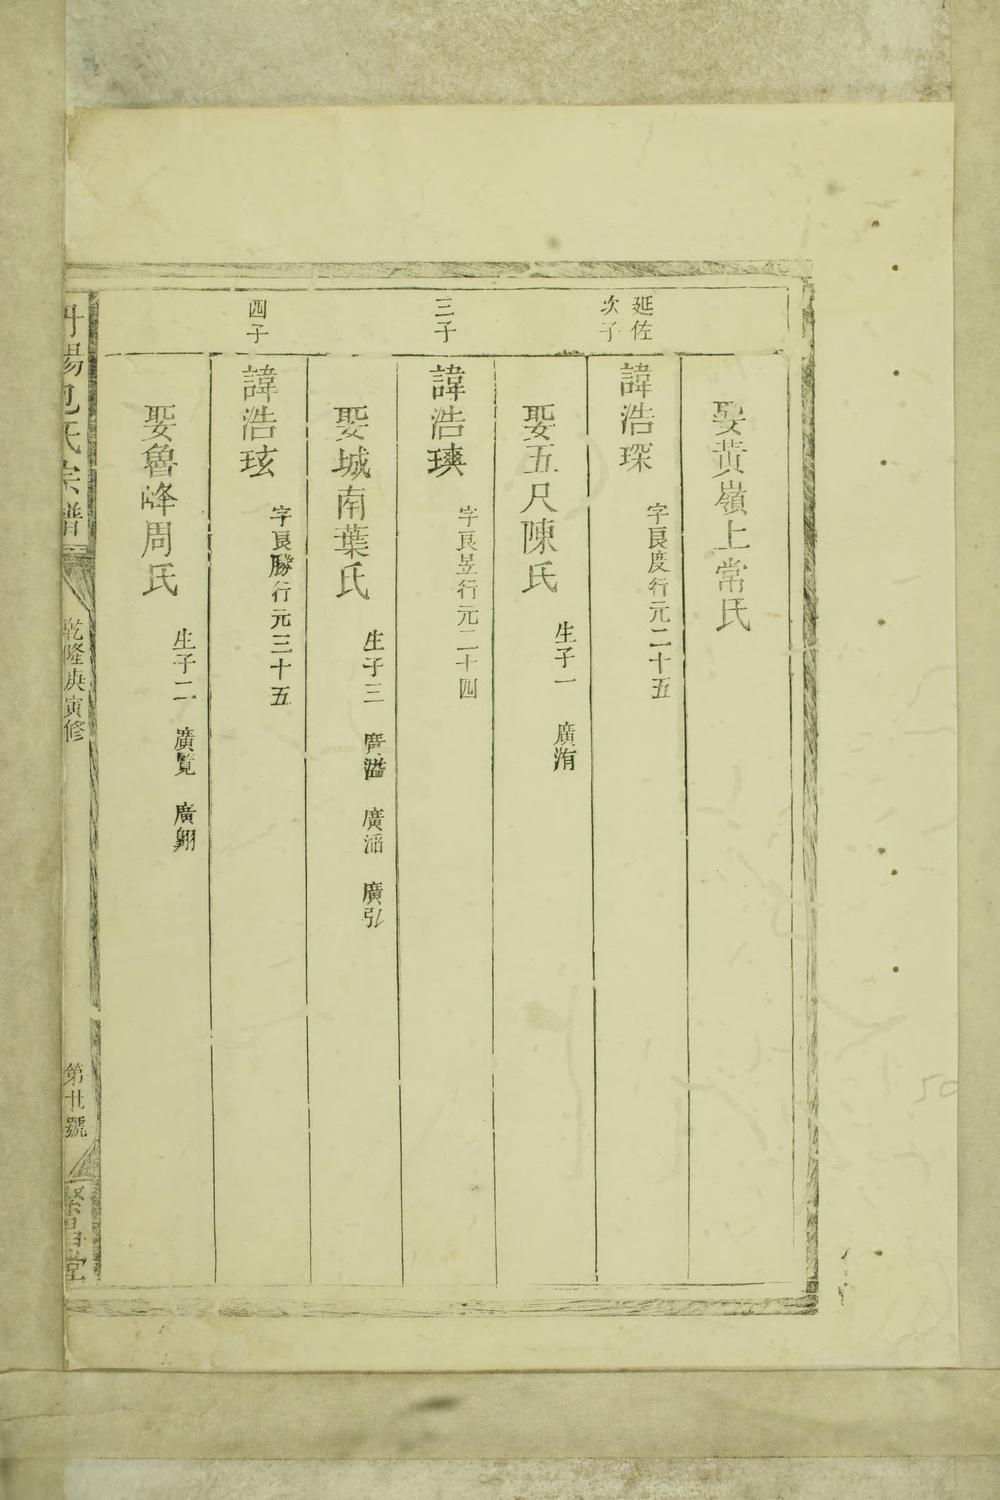 娶黃嶺上常氏
延佐
次子
諱浩琛
字良度行元二十五
娶五尺陳氏
生子一 廣洧
三子
諱浩瑛
字良昱行元二十四
娶城南葉氏
生子三 廣溢 廣滔 廣弘
四子
諱浩玹
字良勝行元三十五
娶魯峰周氏
生子二 廣覽 廣翱
丹陽包氏宗譜
乾隆庚寅修
第廿號
繁昌堂